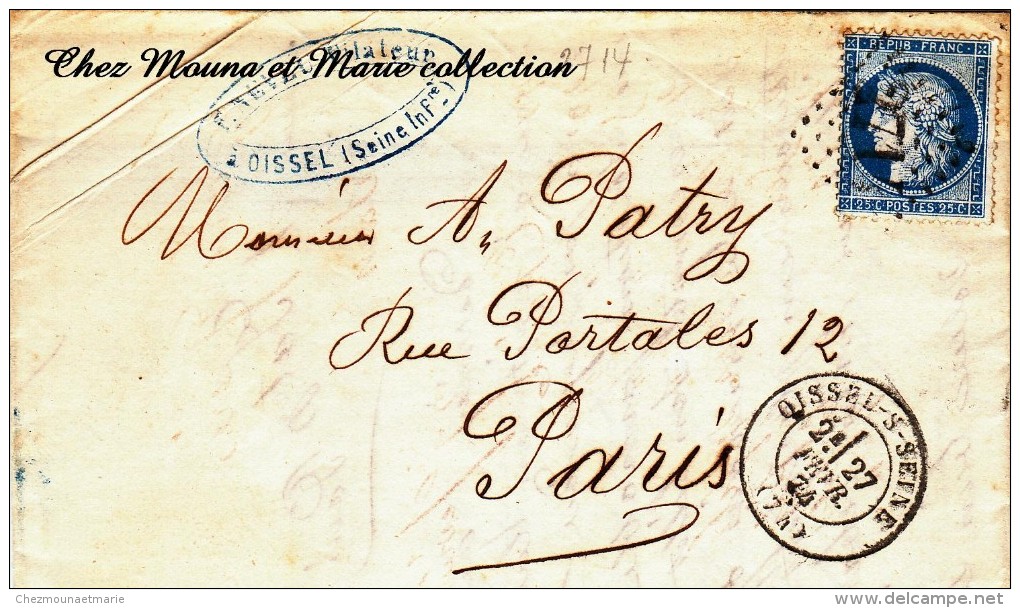 Chez Mouna et Marie collection
2714
Filateur
à OISSEL (Seine Infre)
REPUB · FRANC
25·C·POSTES·25·C
Monsieur A. Patry
Rue Portales 12
Paris
OISSEL-S-SEINE
2e/ 27
FEVR.
74
(74)
Chezmounaetmarie
delcampe.net